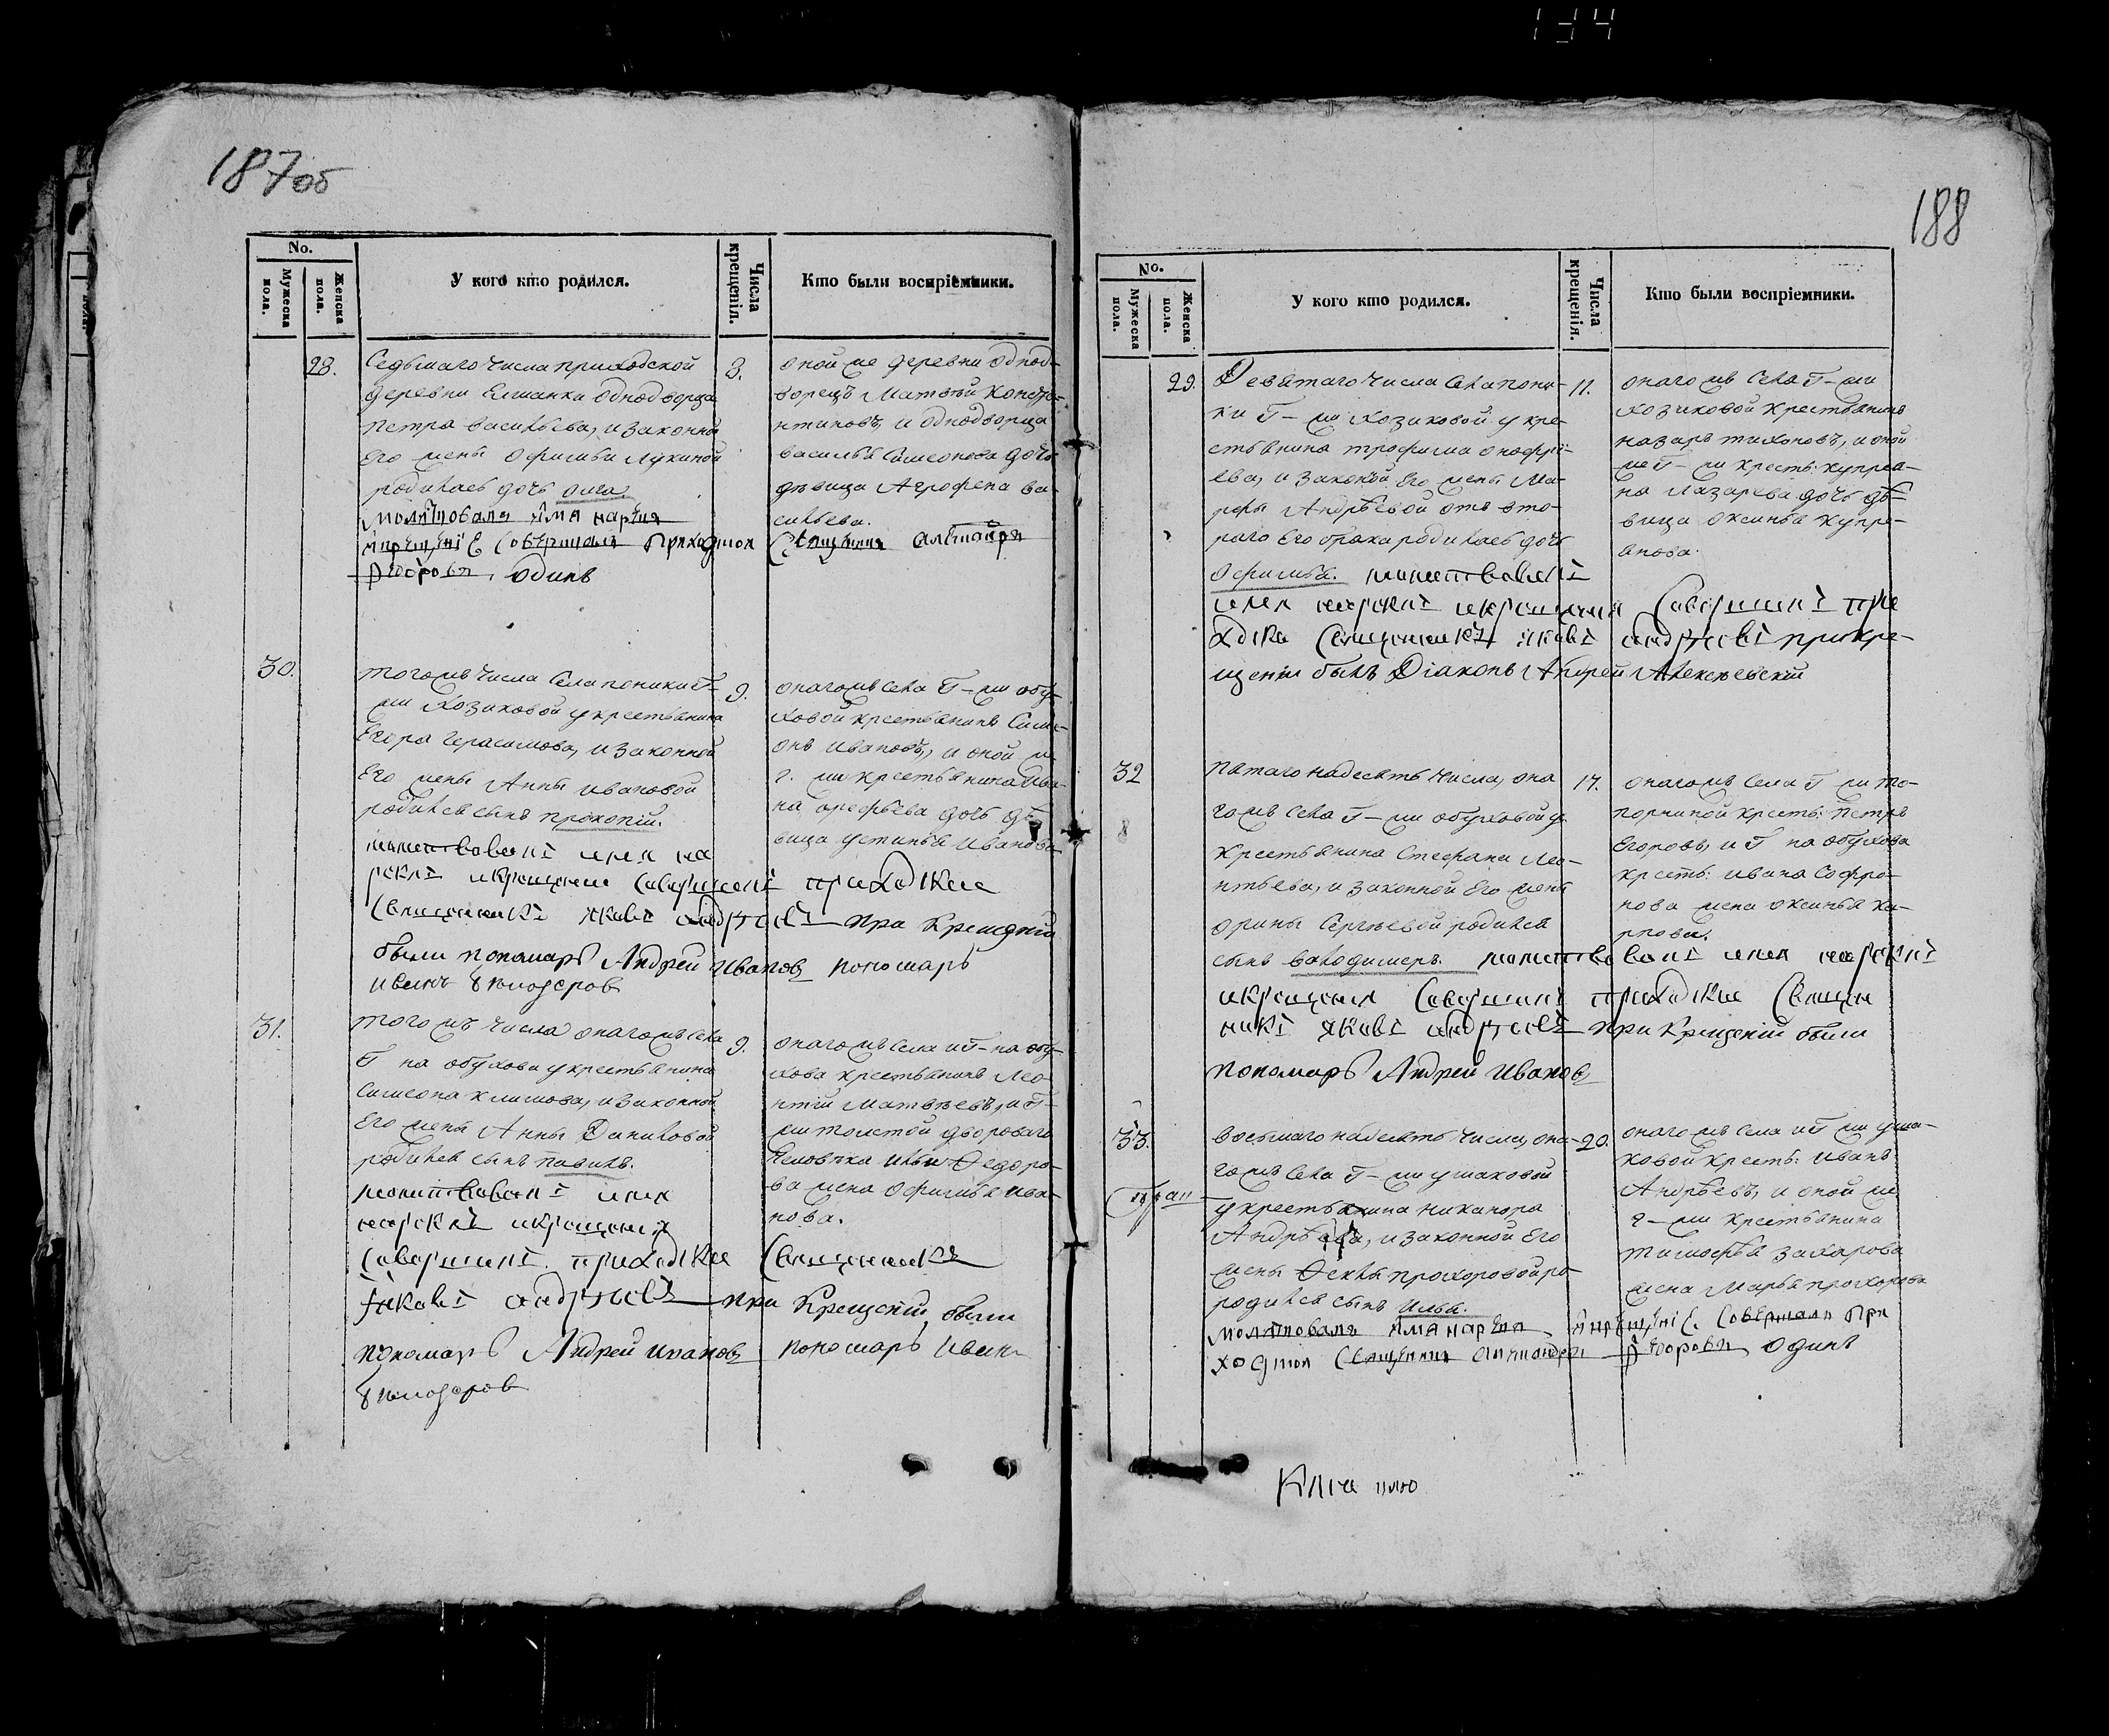 187об
No.
Мужеска пола.
Женска пола.
У кого кто родился.
Числа крещенія.
Кто были воспріемники.
28.
Седьмаго числа приходской
деревни Елшанки однодворца
Петра Васильева, и законной
Его жены Офимьи Лукиной
родилась дочь
молитвовалъ имя нарекъ
и крещеніе совершалъ приходской священникъ
одинъ
8.
оной же деревни однод-
ворецъ Матвей Конста-
нтиновъ, и однодворца
Василья Симеонова дочь
девица Агрофена Ва-
сильева.
30.
того жъ числа села поники Г-
жи Козиковой у крестьянина
Егора Герасимова, и законной
Его жены Анны Ивановой
родился сынъ Прокопій.
молитвовалъ имя на
рекъ и крещение совершилъ приходский
священникъ Яковъ Андреевъ при крещеніи
были пономарь Андрей Иванов пономарь
9.
онаго жъ села Г-жи обу-
ховой крестьянинъ Симе-
онъ Ивановъ, и оной ж
г. жи крестьянина Ива-
на Орефьева дочь де-
вица Устинья Иванова
31.
того жъ числа онаго жъ села
Г на обухова у крестьянина
Симеона Климова, и законной
Его жены Анны Даниловой
родился сынъ Павилъ.
молитвовалъ имя
нарекъ и крещения
совершилъ приходские священникъ
Яковъ Андреевъ при крещеніи были
пономарь Андрей Иванов пономарь Иван
9.
онаго жъ села и Г-на обу-
хова крестьянинъ Лео-
нтій Матвеевъ, и Г-
жи толстой двороваго
человека Ильи Федоро-
ва жена Офимья Ива-
нова.
188
No.
Мужеска пола.
Женска пола.
У кого кто родился.
Числа крещенія.
Кто были воспріемники.
29.
Девятаго числа села пони-
ки Г-жи Козиковой у кре-
стьянина Трофима Онофрі-
ева, и законой Его жены Ма-
рфы Андреевой отъ вто-
раго Его брака родилась дочь
Офимья. молитвовалъ
имя нарекъ и крещения совершилъ при
ходски священникъ Яковъ Андреевъ при кре-
щеніи былъ Діаконъ Андрей Алексеевскій
11.
онаго жъ села Г-жи
Козиковой крестьянинъ
Назаръ Тихоновъ, и оной
же Г-жи кресть: Купреа-
на Лазарева дочь де-
вица Оксинья Купре-
анова.
32
пятаго надесять числа, она
гожъ села Г-жи обуховой у
крестьянина Стефана Лео-
нтьева, и законной Его жены
Орины Сергеевой родился
сынъ Володимеръ. молитвовалъ имя нарекъ
и крещения совершилъ приходские священ
никъ Яковъ Андреевъ при крещеніи были
пономарь Андрей Иванов
17.
онаго жъ села Г жи то-
порниной кресть: Петръ
Егоровъ, и Г на обухова
кресть: Ивана Софро-
нова жена Оксинья Ка-
рпова.
33.
восьмаго надесять числа, она-
гожъ села Г-жи ушаковой
у крестьянина Никанора
Андреева, и законной Его
жены Феклы Прохоровой ро-
родился сынъ Илья.
молитвовалъ имя нарекъ и крещеніе совершалъ при
ходской священникъ одинъ
20.
онаго жъ села и Г жи уша-
ковой кресть: Иванъ
Андреевъ, и оной же
г-жи крестьянина
Тимофея Захарова
жена Марья Прохорова